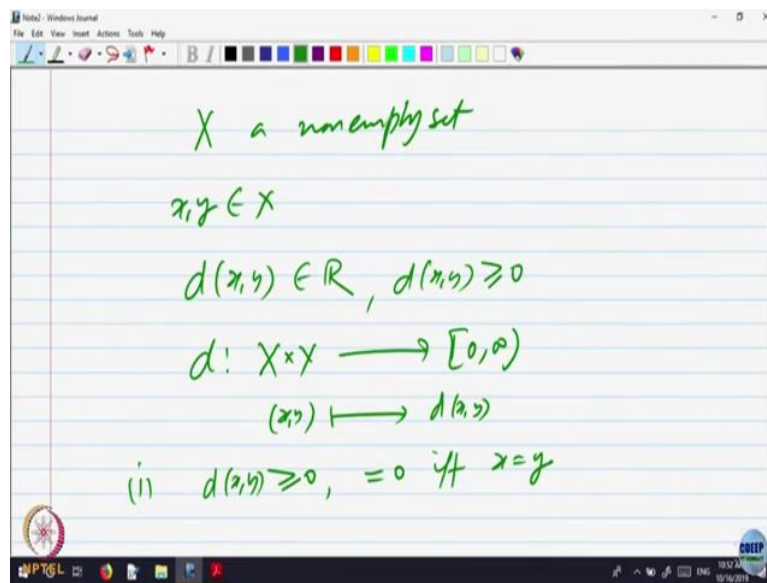 Note2 - Windows Journal
File Edit View Insert Actions Tools Help
B I
X a nonempty set
x,y ∈ X
d(x,y) ∈ ℝ, d(x,y) ⩾ 0
d: X×X ⟶ [0,∞)
(x,y) ⟼ d(x,y)
(i) d(x,y) ⩾ 0, = 0 iff x=y
NPTEL
CDEEP
ENG
10/16/2019